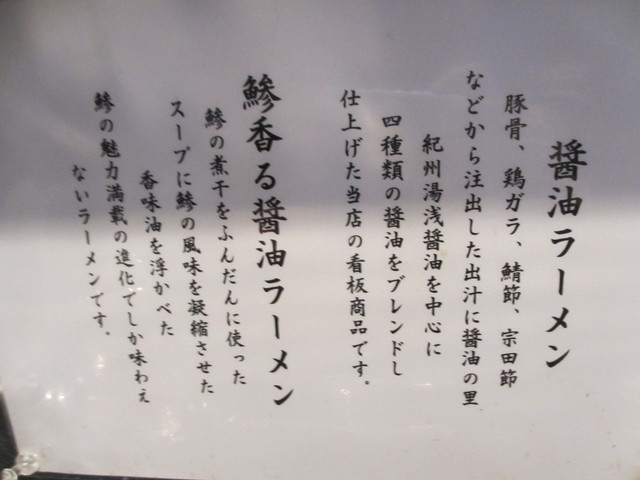 醤油ラーメン
豚骨、鶏ガラ、鯖節、宗田節
などから注出した出汁に醤油の里
紀州湯浅醤油を中心に
四種類の醤油をブレンドし
仕上げた当店の看板商品です。
鯵香る醤油ラーメン
鯵の煮干をふんだんに使った
スープに鯵の風味を凝縮させた
香味油を浮かべた
鯵の魅力満載の進化でしか味わえ
ないラーメンです。